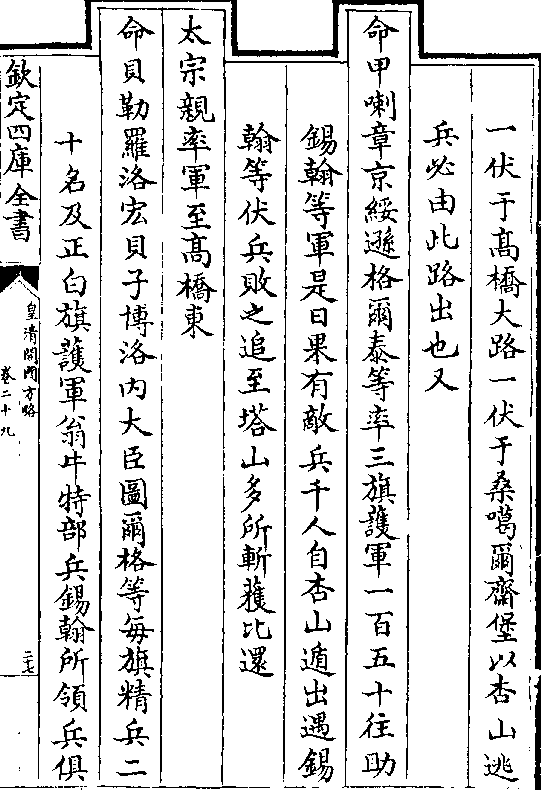 一伏于髙橋大路一伏于桑噶爾齋堡以杏山逃
兵必由此路出也又
命甲喇章京綏遜格爾泰等率三旗護軍一百五十往助
錫翰等軍是日果有敵兵千人自杏山遁出遇錫
翰等伏兵敗之追至塔山多所斬獲比還
太宗親率軍至髙橋東
命貝勒羅洛宏貝子博洛内大臣圖爾格等每旗精兵二
十名及正白旗護軍翁牛特部兵錫翰所領兵俱
欽定四庫全書
皇清開國方略
卷二十九
二七